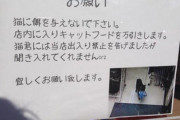 お願い
猫に餌を与えないで下さい。
店内に入りキャットフードを万引きします。
猫君には当店出入り禁止を告げましたが
聞き入れてくれません
宜しくお願い致します。